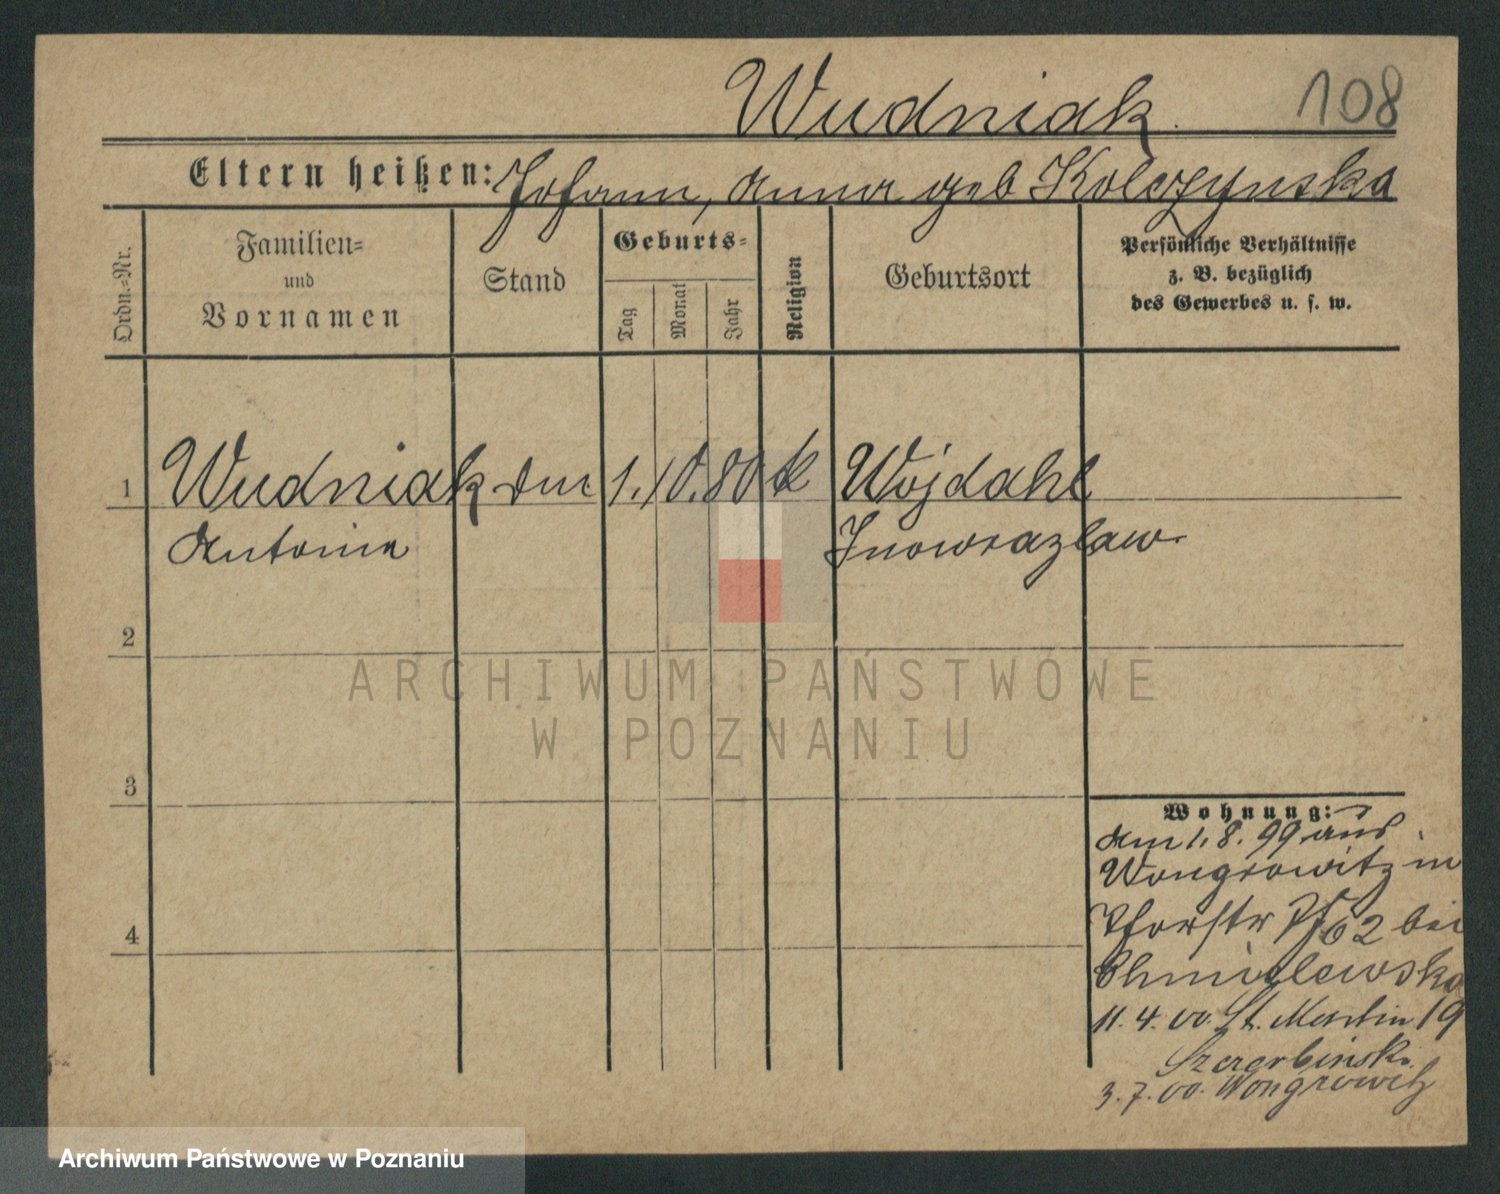 Wudniak 108
Eltern heißen: Johann, Anna geb Kolczynska
Ordn.=Nr.
Familien=
und
Vornamen
Stand
Geburts=
Tag
Monat
Jahr
Religion
Geburtsort
Persönliche Verhältnisse
z. B. bezüglich
des Gewerbes u. s. w.
1 Wudniak 1. 10. 80 k Wojdahl
Antonie Inowrazlaw
2
3
4
Wohnung:
am 1. 8. 99 aus
Wongrowitz in
62 bei
Chmielewska
11. 4. 00. St. Martin 19
Szczerbinski
3. 7. 00. Wongrowitz
ARCHIWUM PAŃSTWOWE
W POZNANIU
Archiwum Państwowe w Poznaniu